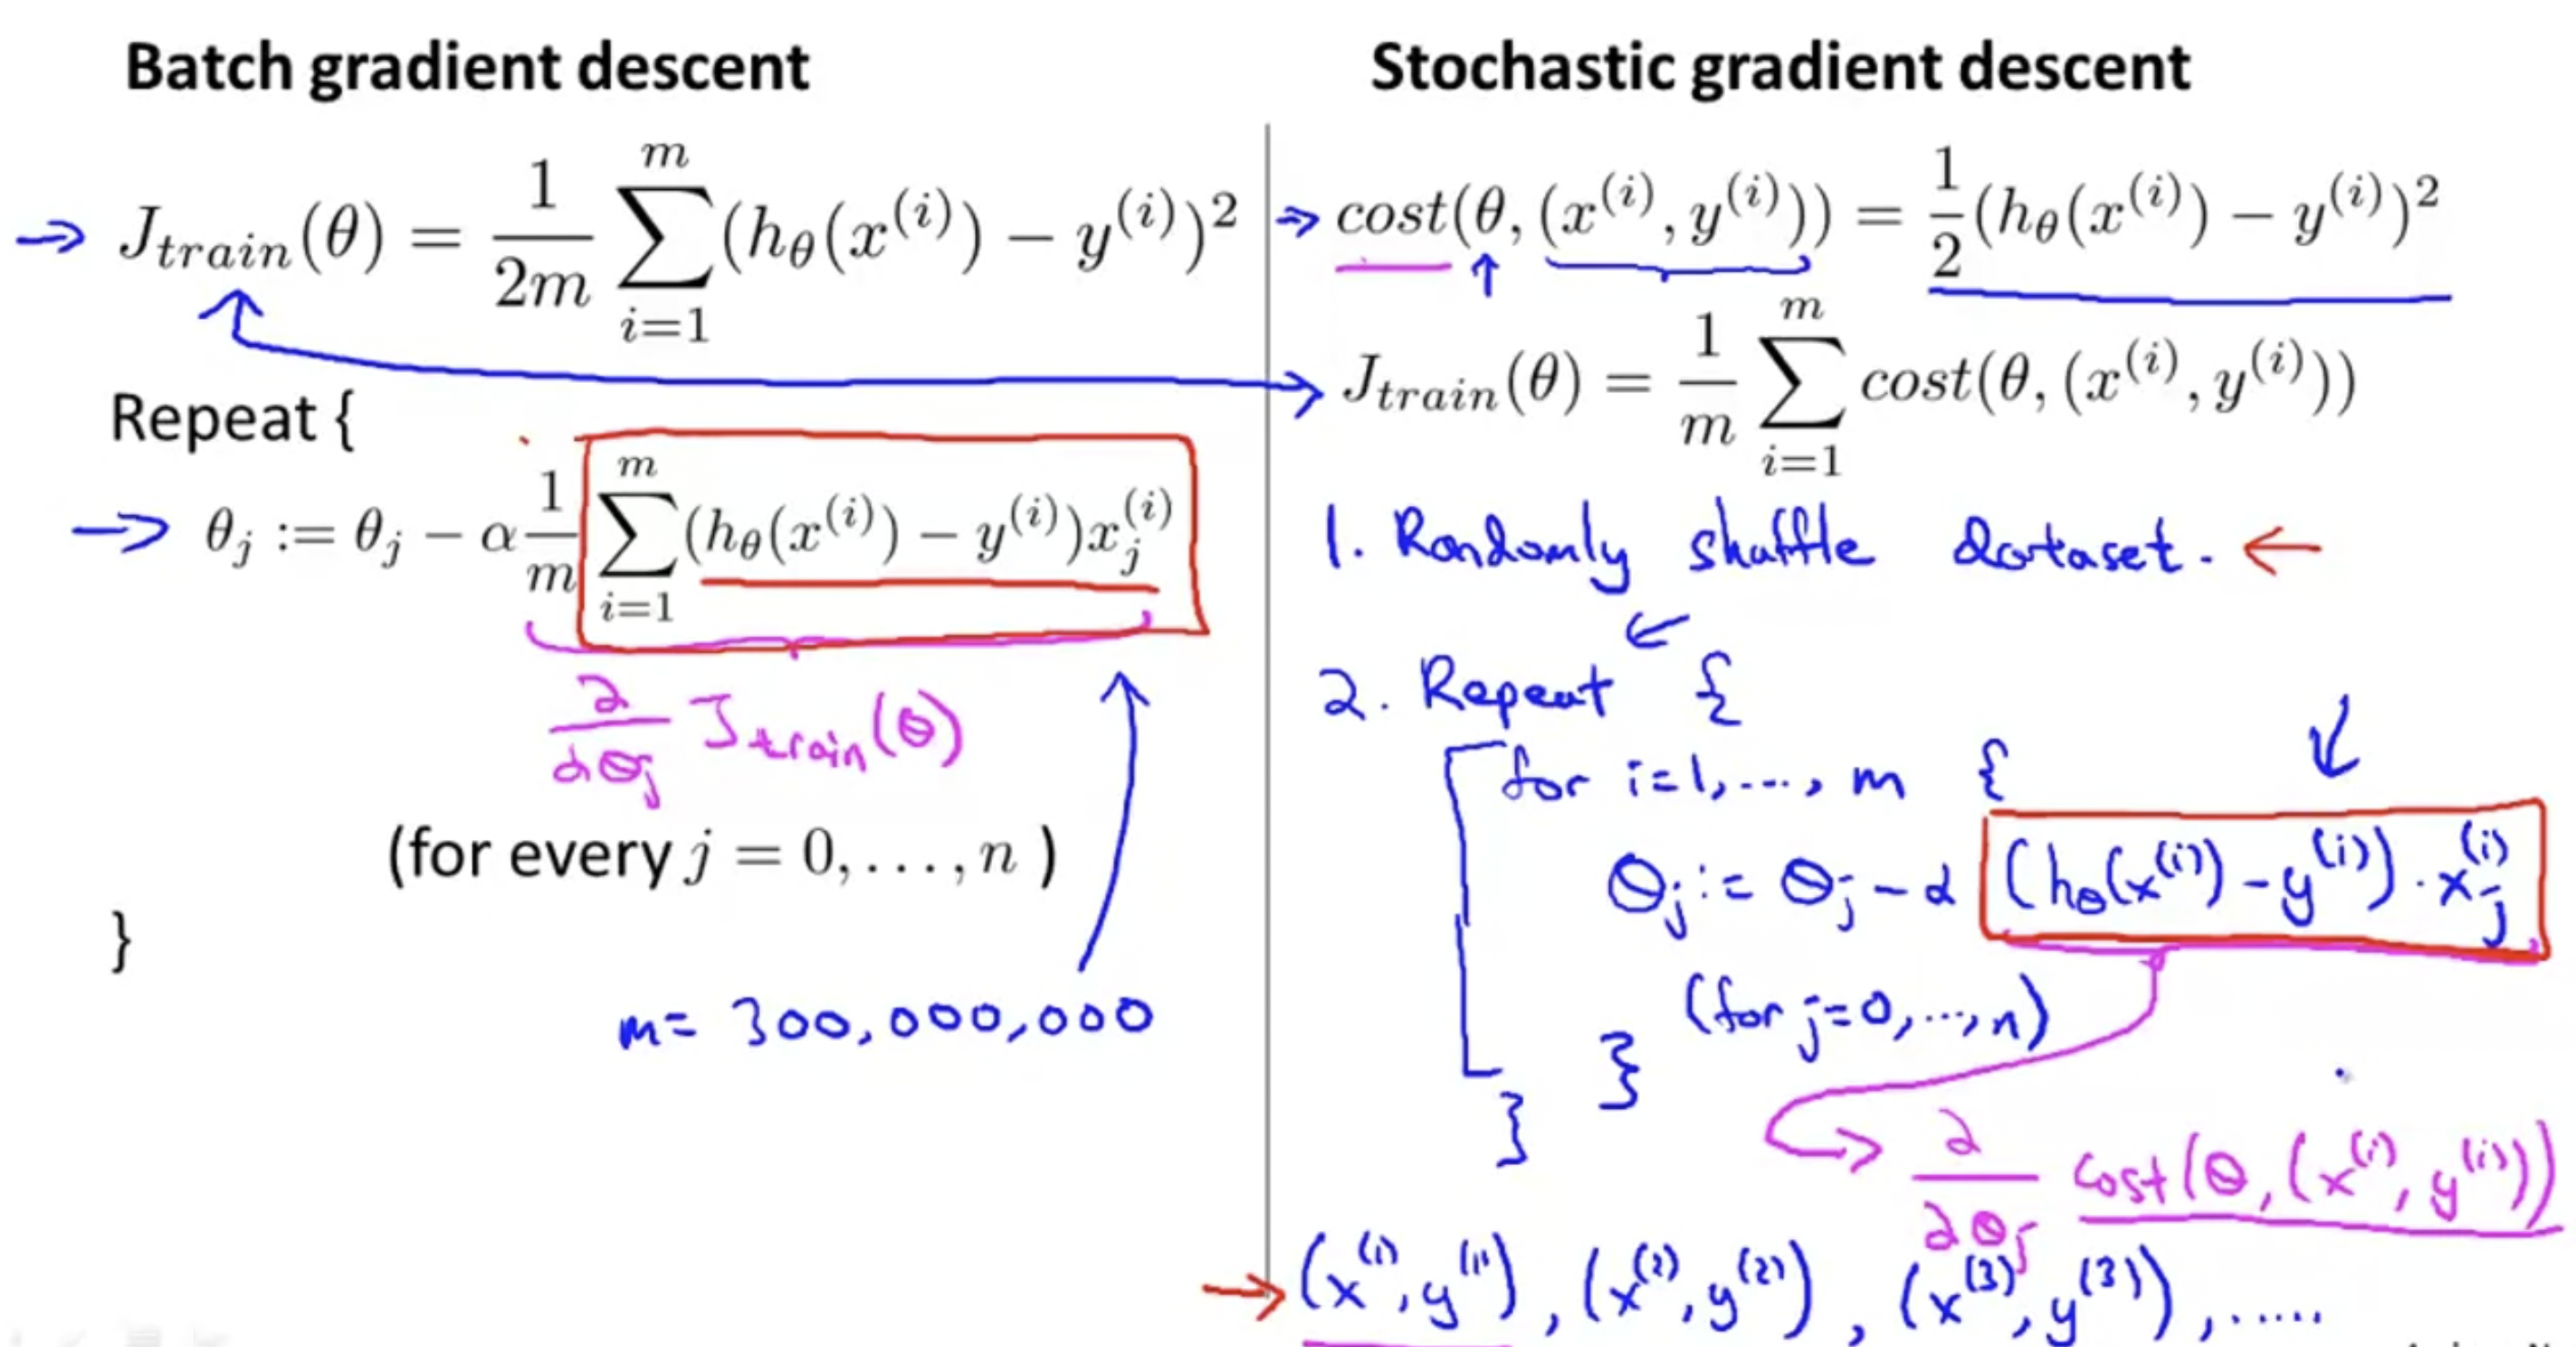 Batch gradient descent
J_train(θ) = 1/2m ∑_{i=1}^{m} (h_θ(x^(i)) − y^(i))²
Repeat {
θ_j := θ_j − α 1/m ∑_{i=1}^{m} (h_θ(x^(i)) − y^(i))x_j^(i)
∂/∂θ_j J_train(θ)
(for every j = 0, . . . , n )
}
m = 300,000,000
Stochastic gradient descent
cost(θ, (x^(i), y^(i))) = 1/2 (h_θ(x^(i)) − y^(i))²
J_train(θ) = 1/m ∑_{i=1}^{m} cost(θ, (x^(i), y^(i)))
1. Randomly shuffle dataset.
2. Repeat {
for i=1,...., m {
θ_j := θ_j − α (h_θ(x^(i)) − y^(i)) · x_j^(i)
(for j=0,...,n)
}
}
∂/∂θ_j cost(θ, (x^(i), y^(i)))
(x^(1), y^(1)), (x^(2), y^(2)), (x^(3), y^(3)), .....